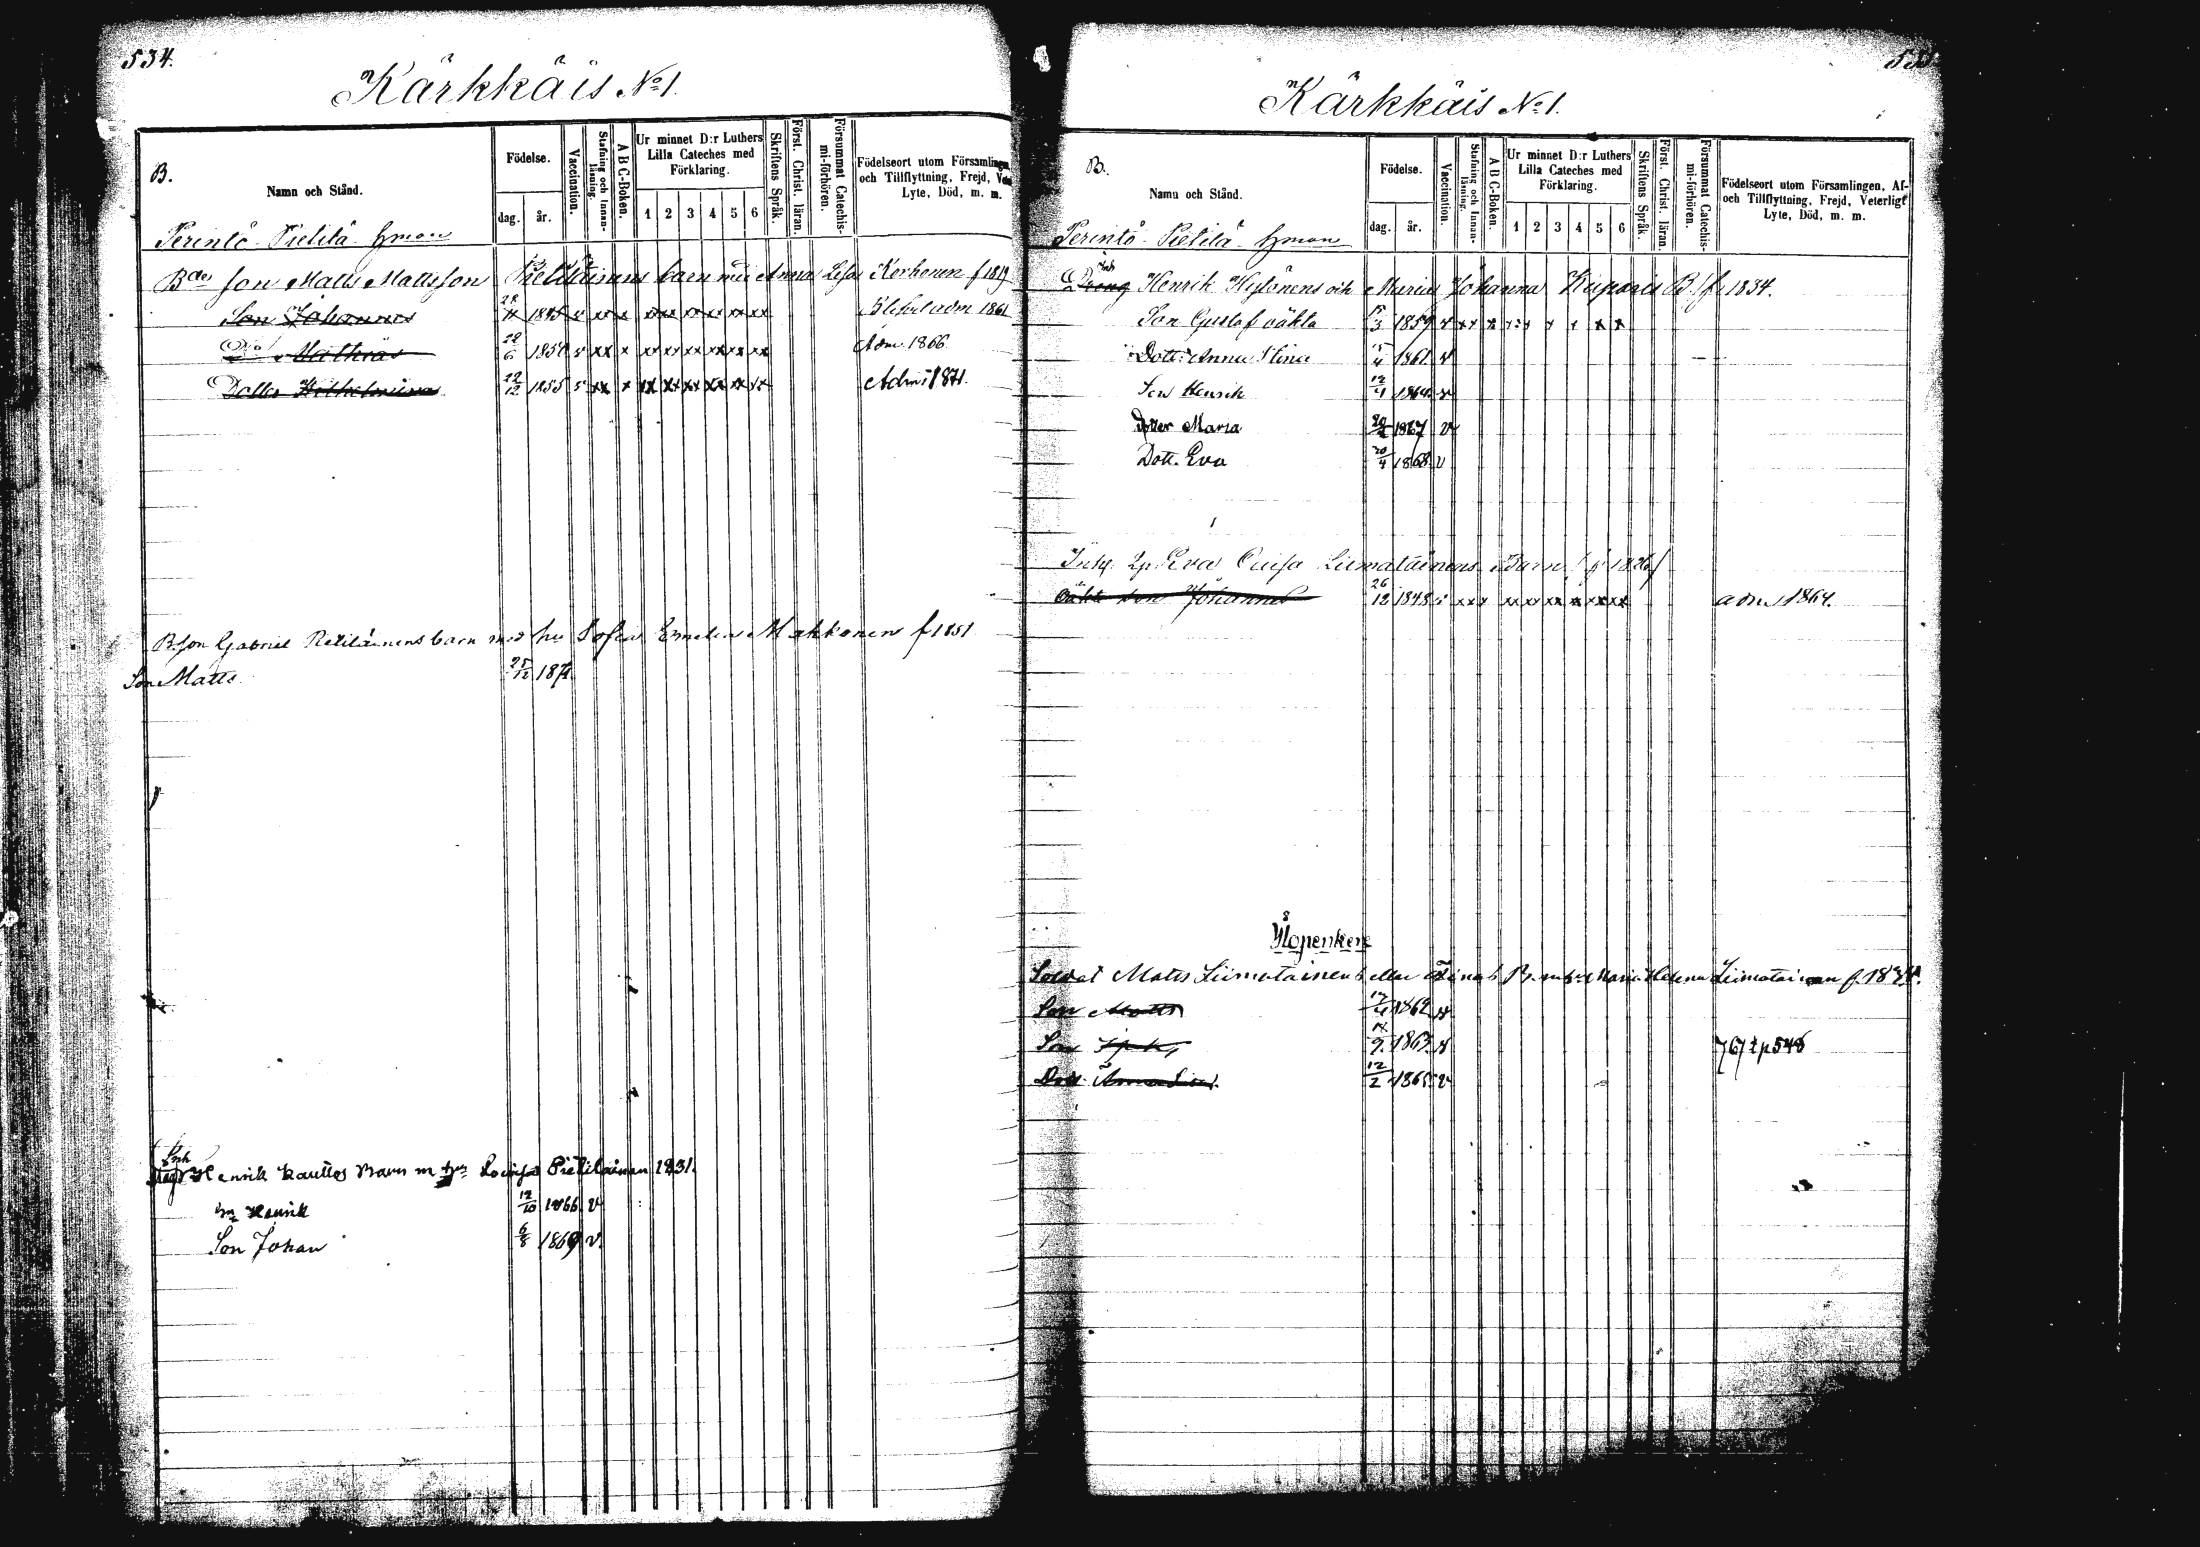 534.
Kärkkäis No 1.
B.
Namn och Stånd.
Födelse.
dag. år.
Vaccination.
Stafning och Innan-läsning.
A B C-Boken.
Ur minnet D:r Luthers Lilla Cateches med Förklaring.
1 2 3 4 5 6
Skriftens Språk.
Först. Christ. läran.
Försummat Catechis-mi-förhören.
Födelseort utom Församlingen,
och Tillflyttning, Frejd,
Lyte, Död, m. m.
Perintö-Pietilä hman
Bdes son Matts Mattsson Pietiläinens barn med Anna Korhonen f 1819
Son Johannes 28/11 1845 v xx x xx xx xx xx xx adm 1861
Mathias 22/6 1850 v xx x xx xx xx xx xx xx Adm. 1866
Dotter Wilhelmina 22/12 1855 v xx x xx xx xx xx xx xx Adm 1871.
B. son Gabriel Pietiläinens barn med hu Sofia Emelia Makkonen f 1851
Son Matts 25/12 187
Inh Henrik Kauttos Barn m hu Lovisa Pietiläinen 1831.
Son Henrik 12/10 1866 v
Son Johan 6/8 1869 v.
Kärkkäis No 1.
B.
Namn och Stånd.
Födelse.
dag. år.
Vaccination.
Stafning och Innan-läsning.
A B C-Boken.
Ur minnet D:r Luthers Lilla Cateches med Förklaring.
1 2 3 4 5 6
Skriftens Språk.
Först. Christ. läran.
Försummat Catechis-mi-förhören.
Födelseort utom Församlingen, Af-
och Tillflyttning, Frejd, Veterligt
Lyte, Död, m. m.
Perintö-Pietilä hman
Inh
Dreng Henrik Hytönens och Maria Johanna Kuparis B. f. 1834.
Son Gustaf oäkta 3 1859 v xx x
Dott: Anna Stina 15/4 1861 v
Son Henrik 1864 v
Dotter Maria 1867 v
Dott. Eva 20/4 1868 v
Inh. Eva Liimatäinens Barn f 1826
Oäkta son Johannes 26/12 1848 v xx x xx xx xx x xx xx adm 1864.
Soldat Matts Liimatainens eller B. m Maria Helena Liimatainen f.
Son Matts 1862 v
Son 9. 1863 v 767 t p 548
Dott. Anna 12/2 1865 v